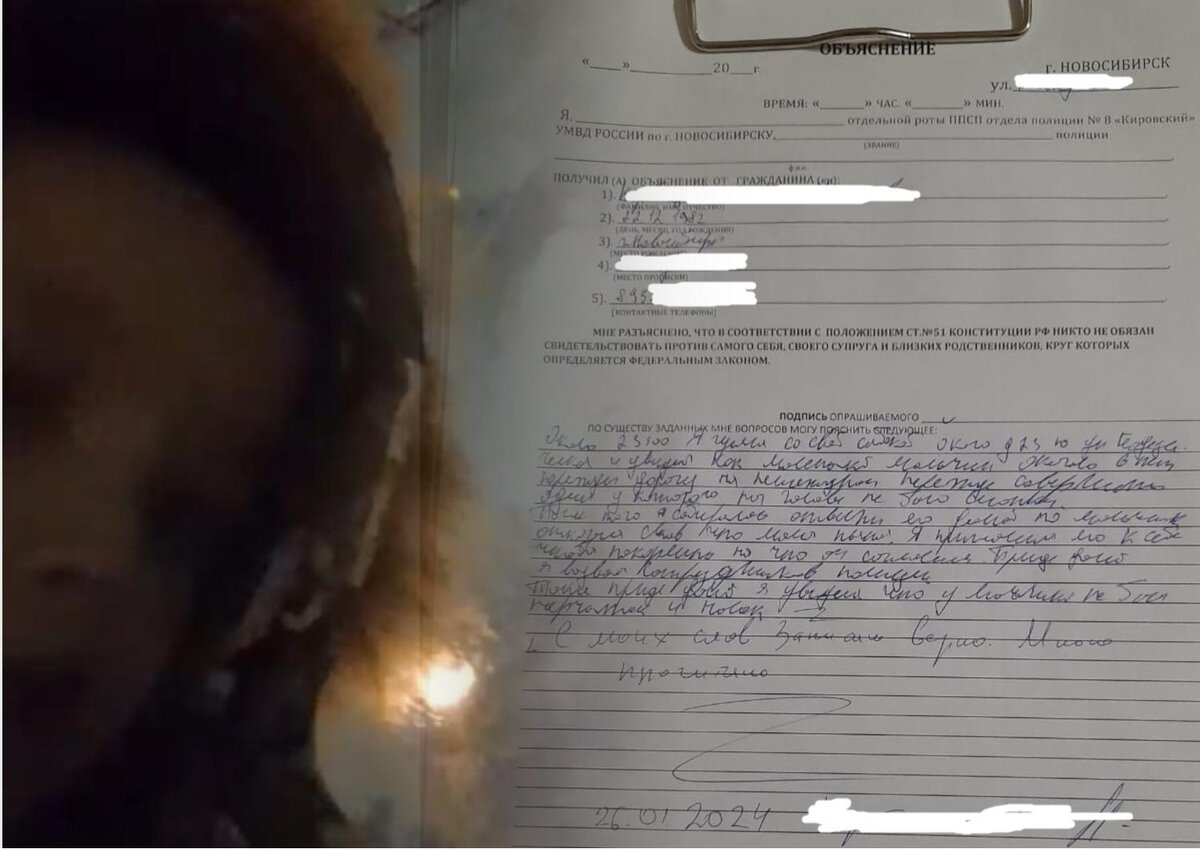 ОБЪЯСНЕНИЕ
«____»__________20___г.
г. НОВОСИБИРСК
ул.
ВРЕМЯ: «______» ЧАС. «______» МИН.
Я, ______ отдельной роты ППСП отдела полиции № 8 «Кировский»
УМВД РОССИИ по г. НОВОСИБИРСКУ,______ полиции
(ЗВАНИЕ)
ФИО
ПОЛУЧИЛ (А) ОБЪЯСНЕНИЕ ОТ ГРАЖДАНИНА (ки):
1).
(ФАМИЛИЯ, ИМЯ, ОТЧЕСТВО)
2). 22 12 1982
(ДЕНЬ, МЕСЯЦ, ГОД РОЖДЕНИЯ)
3). г. Новосибирск
(МЕСТО РОЖДЕНИЯ)
4).
(МЕСТО ПРОПИСКИ)
5). 899
(КОНТАКТНЫЕ ТЕЛЕФОНЫ)
МНЕ РАЗЪЯСНЕНО, ЧТО В СООТВЕТСТВИИ С ПОЛОЖЕНИЕМ СТ.№51 КОНСТИТУЦИИ РФ НИКТО НЕ ОБЯЗАН
СВИДЕТЕЛЬСТВОВАТЬ ПРОТИВ САМОГО СЕБЯ, СВОЕГО СУПРУГА И БЛИЗКИХ РОДСТВЕННИКОВ, КРУГ КОТОРЫХ
ОПРЕДЕЛЯЕТСЯ ФЕДЕРАЛЬНЫМ ЗАКОНОМ.
ПОДПИСЬ ОПРАШИВАЕМОГО
ПО СУЩЕСТВУ ЗАДАННЫХ МНЕ ВОПРОСОВ МОГУ ПОЯСНИТЬ СЛЕДУЮЩЕЕ:
Около 23:00 Я гулял со своей собакой около д 25 по ул
и увидел как маленький мальчик около 6 лет
переходит дорогу на пешеходном переходе совершенно
один у которого на голове не было
После того я собирался отвести его домой но мальчик
Я пригласил его к себе
покормить на что он согласился Придя домой
я вызвал сотрудников полиции
Также придя домой я увидел что у мальчика не было
перчаток и носок
С моих слов записано верно. Мною
прочитано
26.01 2024